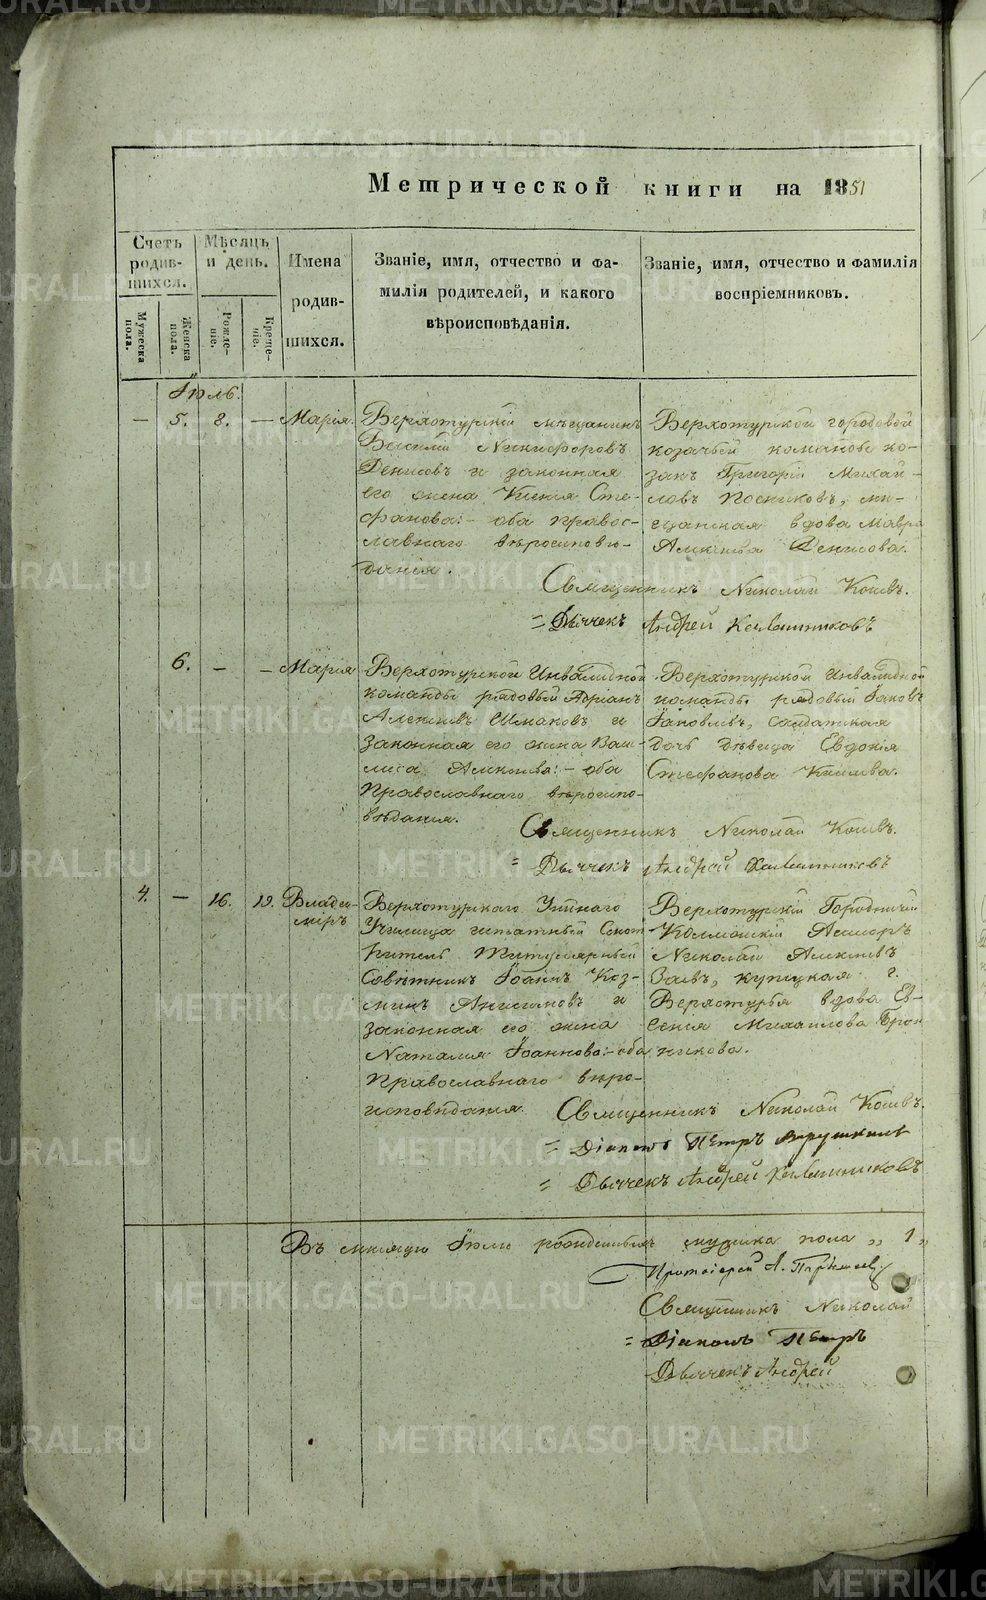 Метрической книги на 1851
Счетъ родившихся.
Мѣсяцъ и день.
Имена родившихся.
Званіе, имя, отчество и фамилія родителей, и какого вѣроисповѣданія.
Званіе, имя, отчество и фамилія воспріемниковъ.
Мужеска пола.
Женска пола.
Рожденіе.
Крещеніе.
Іюль.
— 5. 8. — Марія.
Верхотурскій мѣщанинъ
Василій Никифоровъ
Денисовъ и законная
его жена Ксенія Сте-
фанова: – оба правос-
лавнаго вѣроисповѣ-
данія.
Верхотурской городовой
козачьей команды ко-
закъ Григорій Михай-
ловъ Посниковъ, мѣ-
щанская вдова Мавра
Алексѣева Денисова.
Священникъ Николай
= Дьячекъ Андрей Калашниковъ
6. — — Марія
Верхотурской Инвалидной
команды рядовый Адріанъ
Алексѣевъ Шмаковъ и
законная его жена Васи-
лиса Алексѣева: – оба
Православнаго вѣроиспо-
вѣданія.
Верхотурской Инвалидной
команды рядовый Іаковъ
Іаковлевъ, солдатская
дочь дѣвица Евдокія
Стефанова
Священникъ Николай
= Дьячекъ Андрей Калашниковъ
4. — 16. 19. Влади-
миръ
Верхотурскаго Уѣзднаго
Училища штатный Смот-
ритель Титулярный
Совѣтникъ Іоаннъ Коз-
минъ Анисимовъ и
законная его жена
Наталія Іоаннова: – оба
Православнаго вѣро-
исповѣданія
Верхотурскій Городничій
Николай Алексѣевъ
купецкая г.
Верхотурья вдова Ев-
генія Михайлова
Священникъ Николай
= Діаконъ Петръ
= Дьячекъ Андрей Калашниковъ
Въ мѣсяцѣ Іюлѣ рожденныхъ мужска пола „ 1 „
Протоіерей А.
Священникъ Николай
= Діаконъ Петръ
Дьячекъ Андрей
METRIKI.GASO-URAL.RU